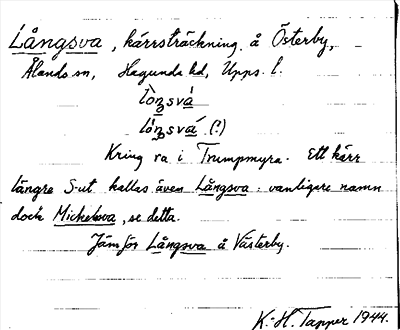 Långsva, kärrsträckning å Österby,
Ålands sn, Hagunda hd, Upps. l.
Kring va i Trumpmyra. Ett kärr
längre S-ut kallas även Långsva: vanligare namn
dock Mickelsva, se detta.
Jämför Långsva å Västerby.
K.-H. Tapper 1944.